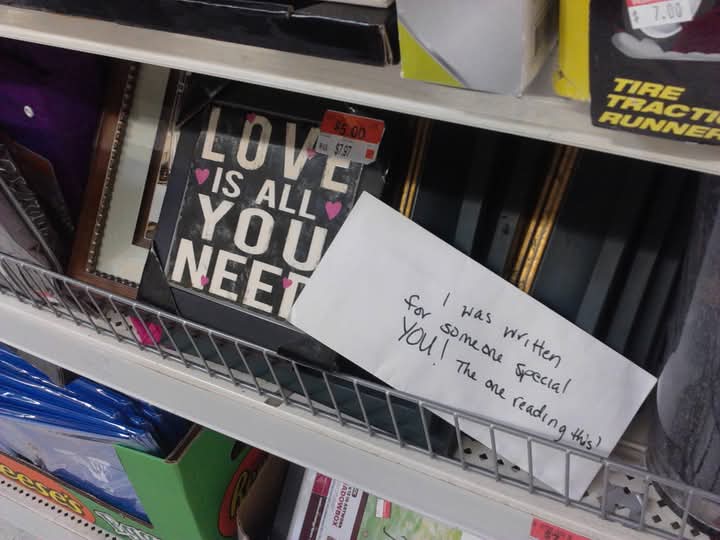 $ 7.00
TIRE
RUNNER
$5.00
$7.97
LOVE
IS ALL
YOU
NEED
I was written
for someone special
YOU! The one reading this!
eese's
SHADOWBOX